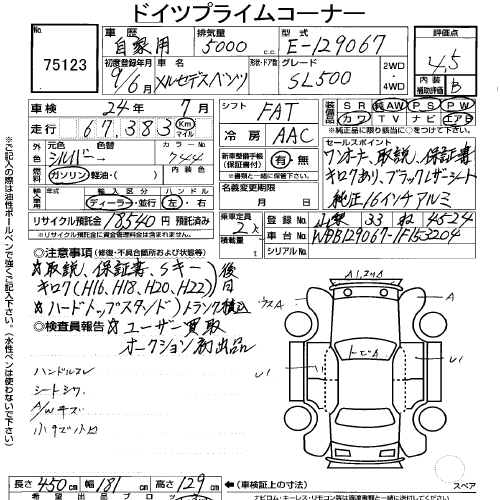 ドイツプライムコーナー
75123
車歴 自家用
排気量 5000 c.c.
型式 E-129067
評価点 4.5
初度登録年月 9/6月
車名 メルセデスベンツ
形状・ドア数
グレード SL500
2WD・4WD
内装補助評価 B
車検 24年 7月
シフト FAT
装備品 SR 純AW PS PW
カワ TV ナビ エアB
※純正品に限り該当に○をつけて下さい。
走行 67,383 Km マイル
冷房 AAC
セールスポイント
ワンオーナー、取説、保証書
キロクあり、ブラックレザーシート
純正16インチアルミ
外色 元色 シルバー 色替
カラーNo. 744
燃料 ガソリン・軽油・( )
内装色
新車整備手帳(保証書付) 有・無
※書類と一緒に保管下さい。
輸入車 輸入区分 ディーラー・並行
ハンドル 左・右
名義変更期限 月 日
リサイクル預託金 18540円 預託済み
※リサイクル預託金に資金管理料金は含みません。
乗車定員 2人
積載量 kg
登録No. 山梨 33 ね 4524
車台No. WDB129067-1F153204
シリアルNo.
◎注意事項(修復・不具合箇所および状態等)
☆取説、保証書、Sキー
キロク(H16、H18、H20、H22) 後日
☆ハードトップスタンド)トランク積込
◎検査員報告 ☆ユーザー買取
オークション初出品
ハンドルスレ
シートシワ
A/Wキズ
小キズ小凹
A1,エクリA
ウスA
A
トビA
U1
U1
スペア
長さ 450cm 幅 181cm 高さ 129cm
(車検証上の寸法)
◎ご記入の際は油性ボールペンで強くご記入下さい。(水性ペンは使わないで下さい)
希望出品ブロック